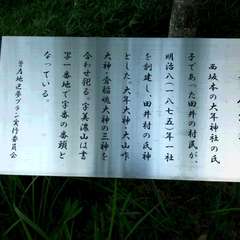 西坂本の大年神社の氏
子であった田井の村民が、
明治八(一八七五)年一社
を創建し、田井村の氏神
とした。大年大神・大山咋
大神・倉稲魂大神の三神を
合わせ祀る。字美濃山は書
写一番地で字番の番頭と
なっている。
地近夢プラン実行委員会